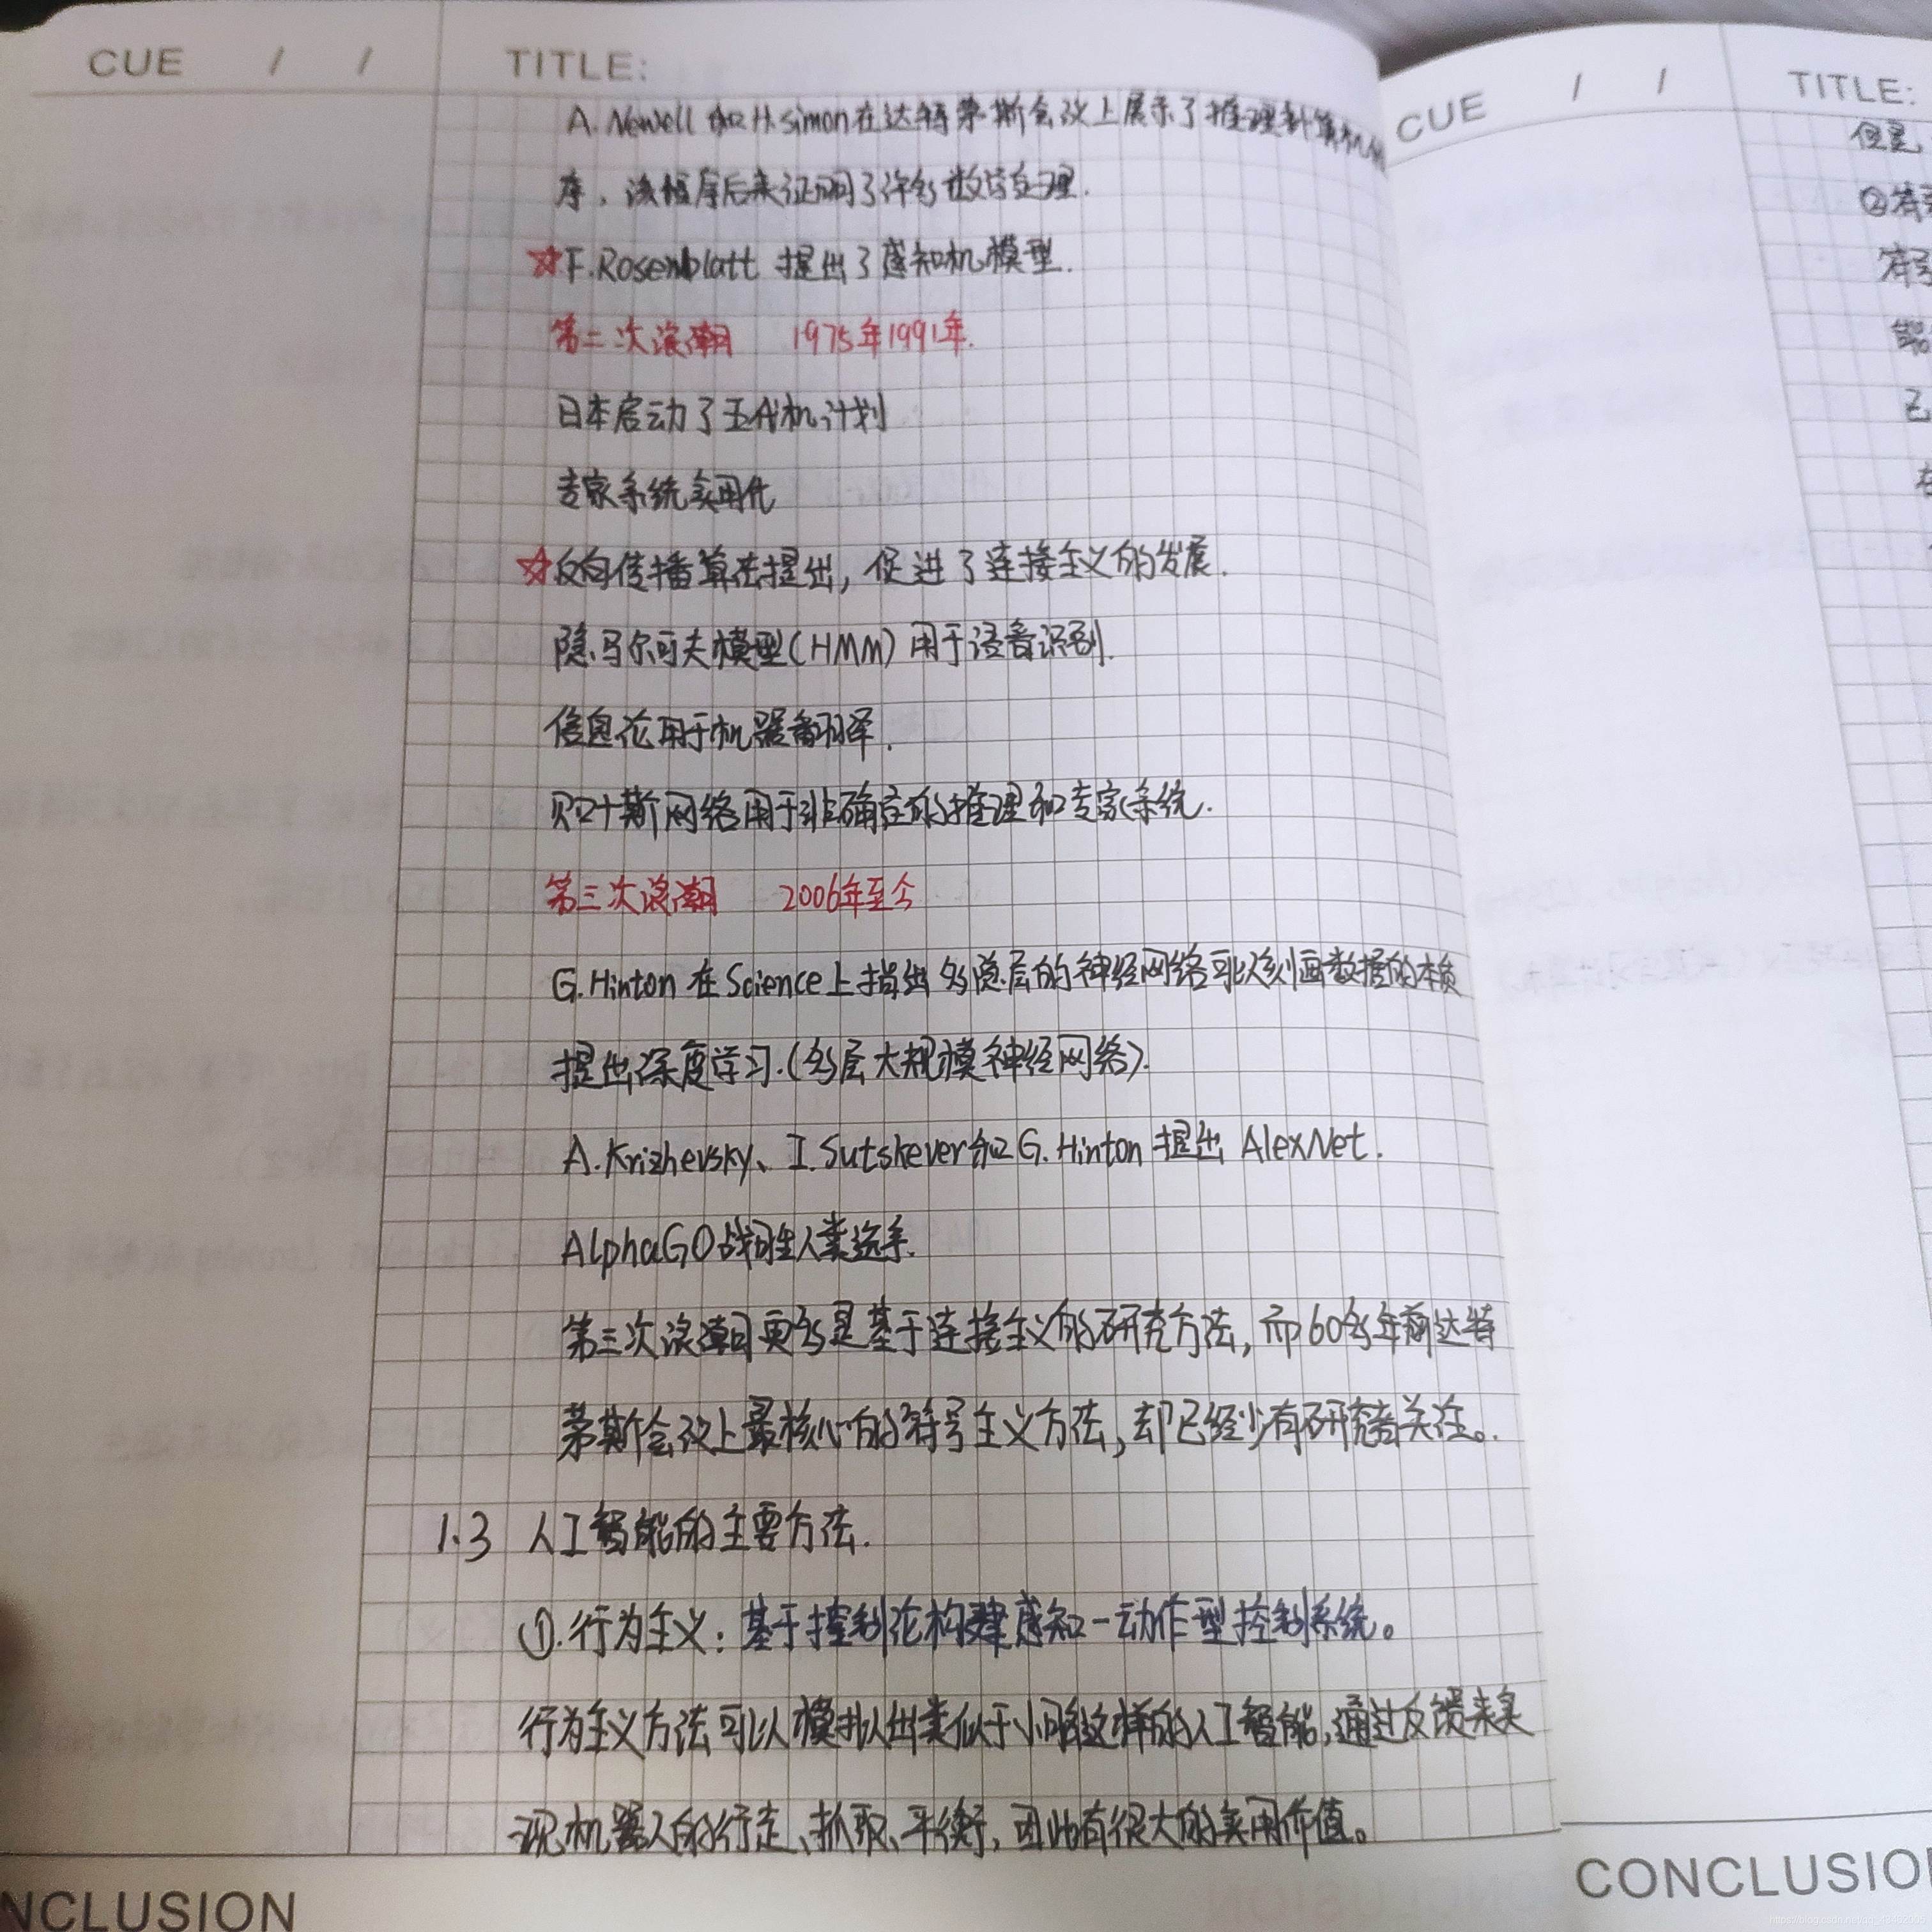 CUE / /
TITLE:
A.Newell和H.simon在达特茅斯会议上展示了推理计算机
序，该程序后来证明了许多数学定理.
☆F.Rosenblatt 提出了感知机模型.
第二次浪潮 1975年1991年.
日本启动了五代机计划
专家系统实用化
☆反向传播算法提出，促进了连接主义的发展.
隐马尔可夫模型(HMM)用于语音识别.
信息论用于机器翻译.
贝叶斯网络用于非确定的推理和专家系统.
第三次浪潮 2006年至今
G.Hinton 在Science上指出多隐层的神经网络可以刻画数据的本质
提出深度学习.(多层大规模神经网络).
A.Krizhevsky、I.Sutskever和G.Hinton 提出 AlexNet.
AlphaGO战胜人类选手.
第三次浪潮更多是基于连接主义的研究方法，而60多年前达特
茅斯会议上最核心的符号主义方法，却已经少有研究者关注。.
1.3 人工智能的主要方法.
①.行为主义：基于控制论构建感知-动作型控制系统。
行为主义方法可以模拟出类似于小脑这样的人工智能，通过反馈来实
现机器人的行走、抓取、平衡，因此有很大的实用价值。
NCLUSION
CUE / /
TITLE:
但是，
②符
符号
能
已
在
CONCLUSIO